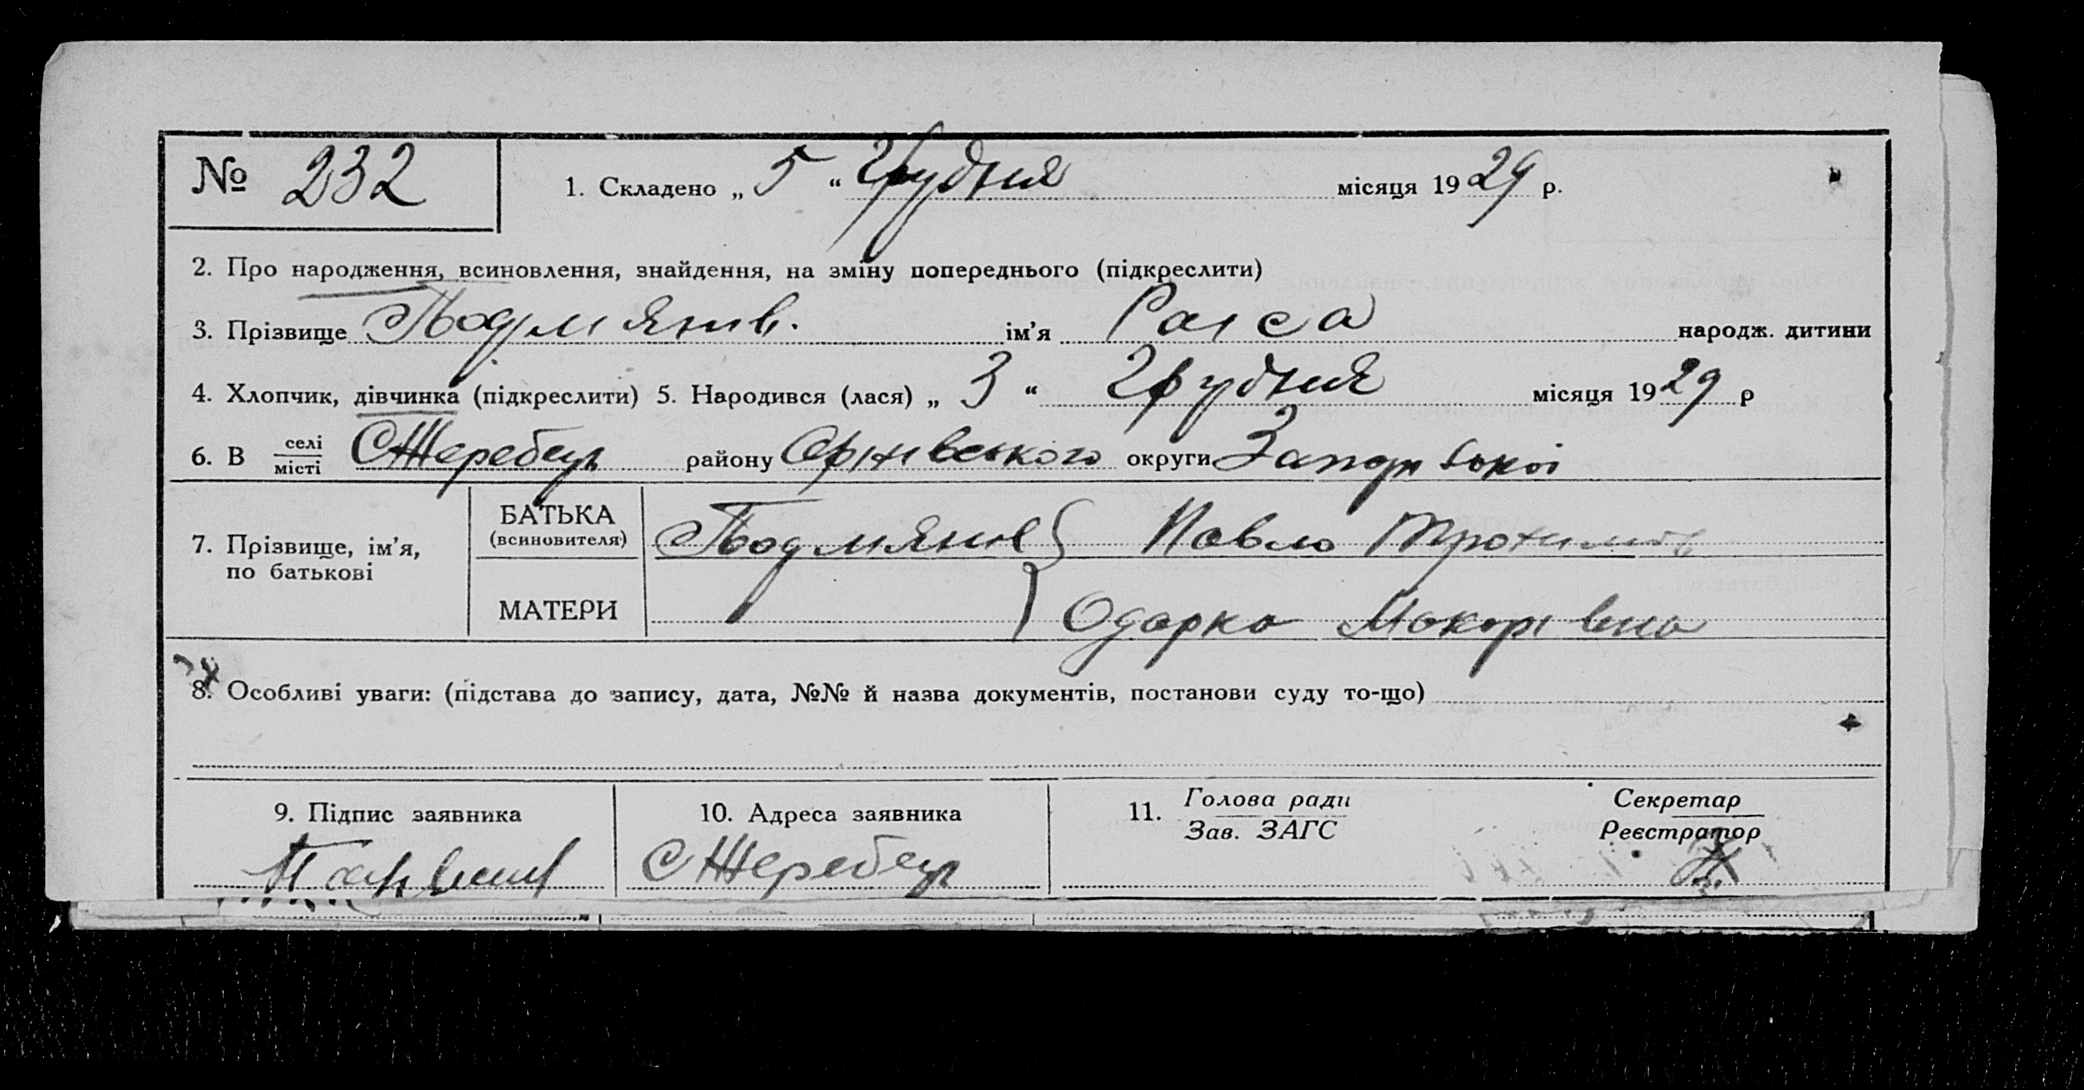 № 232
1. Складено „ 5 “ Грудня місяця 1929 р.
2. Про народження, всиновлення, знайдення, на зміну попереднього (підкреслити)
3. Прізвище ім’я Раіса народж. дитини
4. Хлопчик, дівчинка (підкреслити) 5. Народився (лася) „ 3 “ Грудня місяця 1929 р
6. В селі
місті С Жеребец району округи
7. Прізвище, ім’я,
по батькові
БАТЬКА
(всиновителя) Павло
МАТЕРИ Одарка Макарівна
8. Особливі уваги: (підстава до запису, дата, №№ й назва документів, постанови суду то-що)
9. Підпис заявника
10. Адреса заявника
С Жеребец
11. Голова ради
Зав. ЗАГС
Секретар
Реєстратор